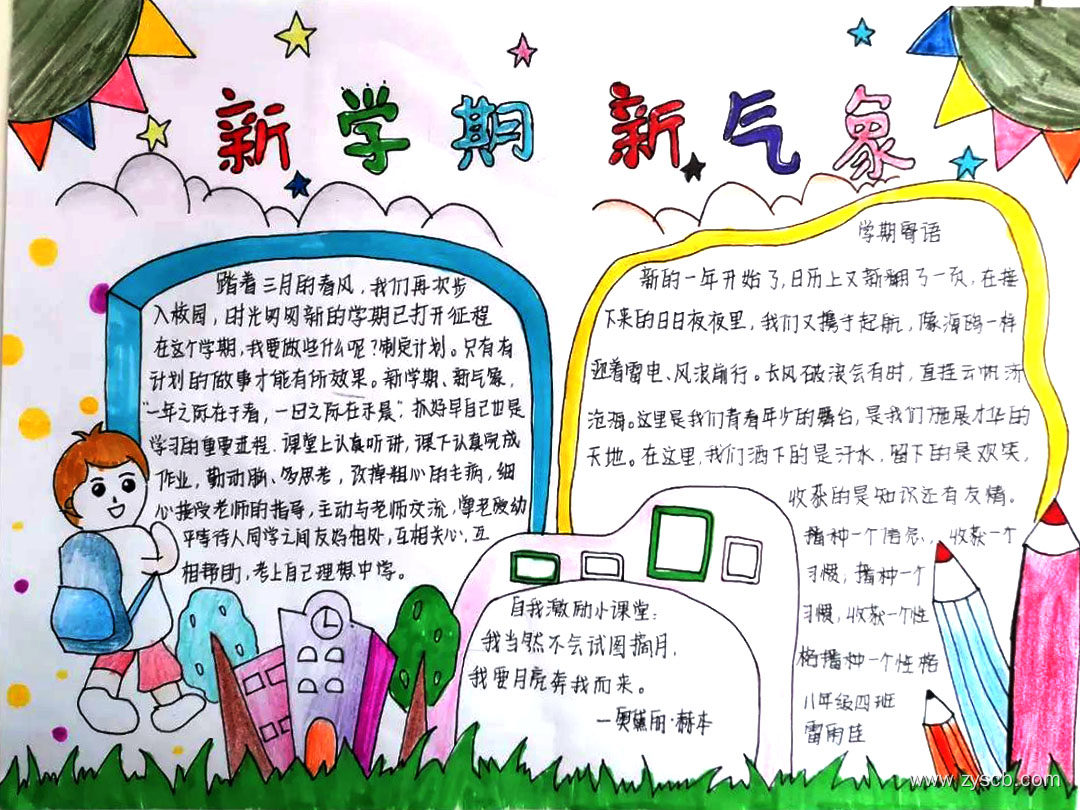 新学期 新气象
踏着三月的春风，我们再次步
入校园，时光匆匆新的学期已打开征程
在这个学期，我要做些什么呢？制定计划。只有有
计划的做事才能有所效果。新学期、新气象，
“一年之际在于春，一日之际在于晨”。抓好早自己也是
学习的重要进程．课堂上认真听讲，课下认真完成
作业，勤动脑、多思考，改掉粗心的毛病，细
心接受老师的指导，主动与老师交流，尊老爱幼
平等待人同学之间友好相处，互相关心，互
相帮助，考上自己理想中学。
学期寄语
新的一年开始了，日历上又新翻了一页，在接
下来的日日夜夜里，我们又携手起航，像海鸥一样
迎着雷电、风浪前行。长风破浪会有时，直挂云帆济
沧海。这里是我们青春年少的舞台，是我们施展才华的
天地。在这里，我们洒下的是汗水，留下的是欢笑，
收获的是知识还有友情。
播种一个信念，收获一个
习惯，播种一个
习惯，收获一个性
格播种一个性格
八年级四班
雷雨佳
自我激励小课堂：
我当然不会试图摘月，
我要月亮奔我而来。
—奥黛丽·赫本
www.zyscb.com